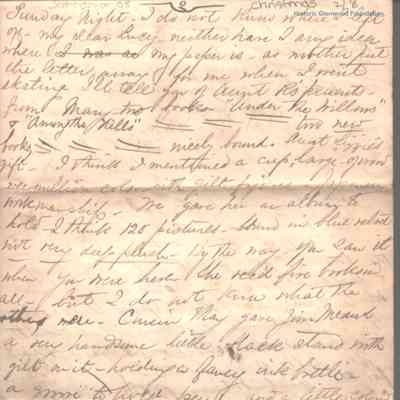 Christmas
Historic Glenwood Foundation
Sunday night, I do not know where I left
off - my dear Lucy - neither have I any idea
where I was as my paper is - as mother put
the letter away for me when I went
skating I'll tell you of Aunt R's presents -
from Mary two books "Under the Willows"
& "Among the Hills" two new
books nicely bound - Aunt Lizzie's
gift - I think I mentioned a cup, large, of
vermillion color with gilt figures
workmanship - We gave her an album to
hold I think 120 pictures - bound in blue velvet
not very deep plush - By the way you saw it
when you were here - She rec'd five books in
all - but I do not know what the
others were - Cousin May gave Jim
a very handsome little black stand with
gilt on it - holding a fancy ink bottle -
a little